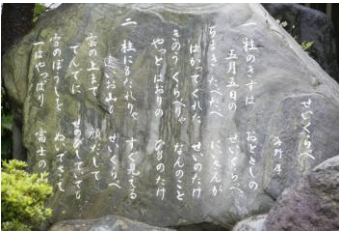 せいくらべ
海野厚
一 柱のきずは おととしの
五月五日の せいくらべ
ちまきたべたべ にいさんが
はかってくれた せいのたけ
きのうくらべりゃ なんのこと
やっと はおりの ひものたけ
二 柱にもたれりゃ すぐ見える
遠いお山も せいくらべ
雲の上まで 顔だして
てんでに せのびしていても
雪のぼうしを ぬいでさえ
一はやっぱり 富士の山